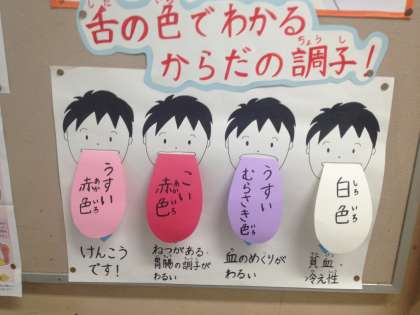 舌の色でわかる
からだの調子！
うすい
赤色
こい
赤色
うすい
むらさき色
白色
けんこう
です！
ねつがある・
胃腸の調子が
わるい
血のめぐりが
わるい
貧血・
冷え性